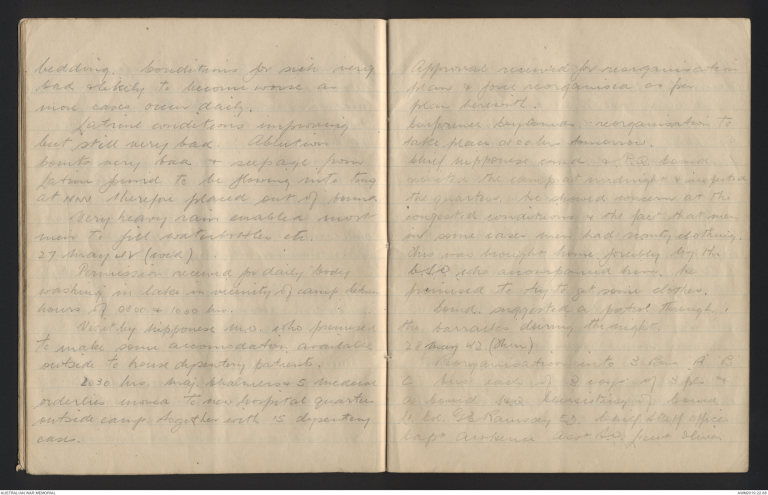 bedding. Conditions for sick very
bad & likely to become worse as
more cases occur daily.
Latrine conditions improving
but still very bad. Ablution
points very bad & seepage from
latrine found to be flowing into
at now therefore placed out of bounds
Very heavy rain enabled most
men to fill waterbottles etc.
27 May 42 (Wed)
Permission received for daily body
washing in lake in vicinity of camp between
hours of 0800 & 1000 hrs.
Visit by Nipponese M.O. who promised
to make some accomodation available
outside to house dysentery patients.
2030 hrs. Maj. Chalmers & 5 medical
orderlies moved to new hospital quarters
outside camp together with 15 dysentery
cases.
Approval received for reorganisation
plan & force reorganised as per
plan herewith.
reorganisation to
take place at hrs tomorrow.
Chief Nipponese
visited the camp at midnight & inspected
the quarters. He showed concern at the
congested conditions & the fact that men
in some cases had scanty clothing.
This was brought home forcibly by the
who accompanied him. He
promised to try to get some clothes.
Comd. suggested a patrol through
the barracks during the night.
28 May 42 (Thur)
Reorganisation into 3 Bns A B
C Bns each of 3 coys of 3 pls &
a HQ consisting of Comd
Lt. Col. G.E. Ramsay CO. Chief Staff Officer
Capt
AUSTRALIAN WAR MEMORIAL